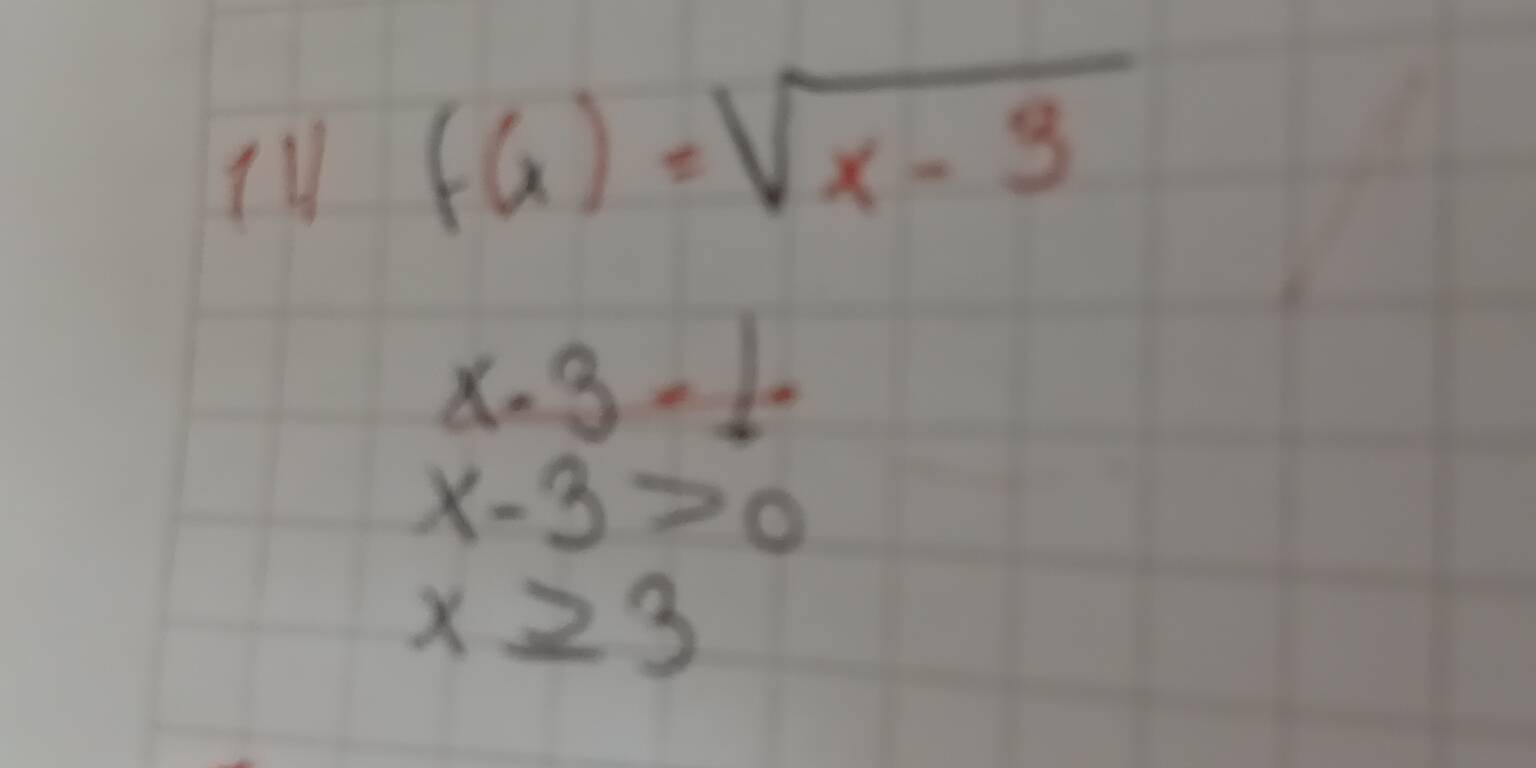 f(x) = √x - 3
x - 3
x - 3 > 0
x ≥ 3